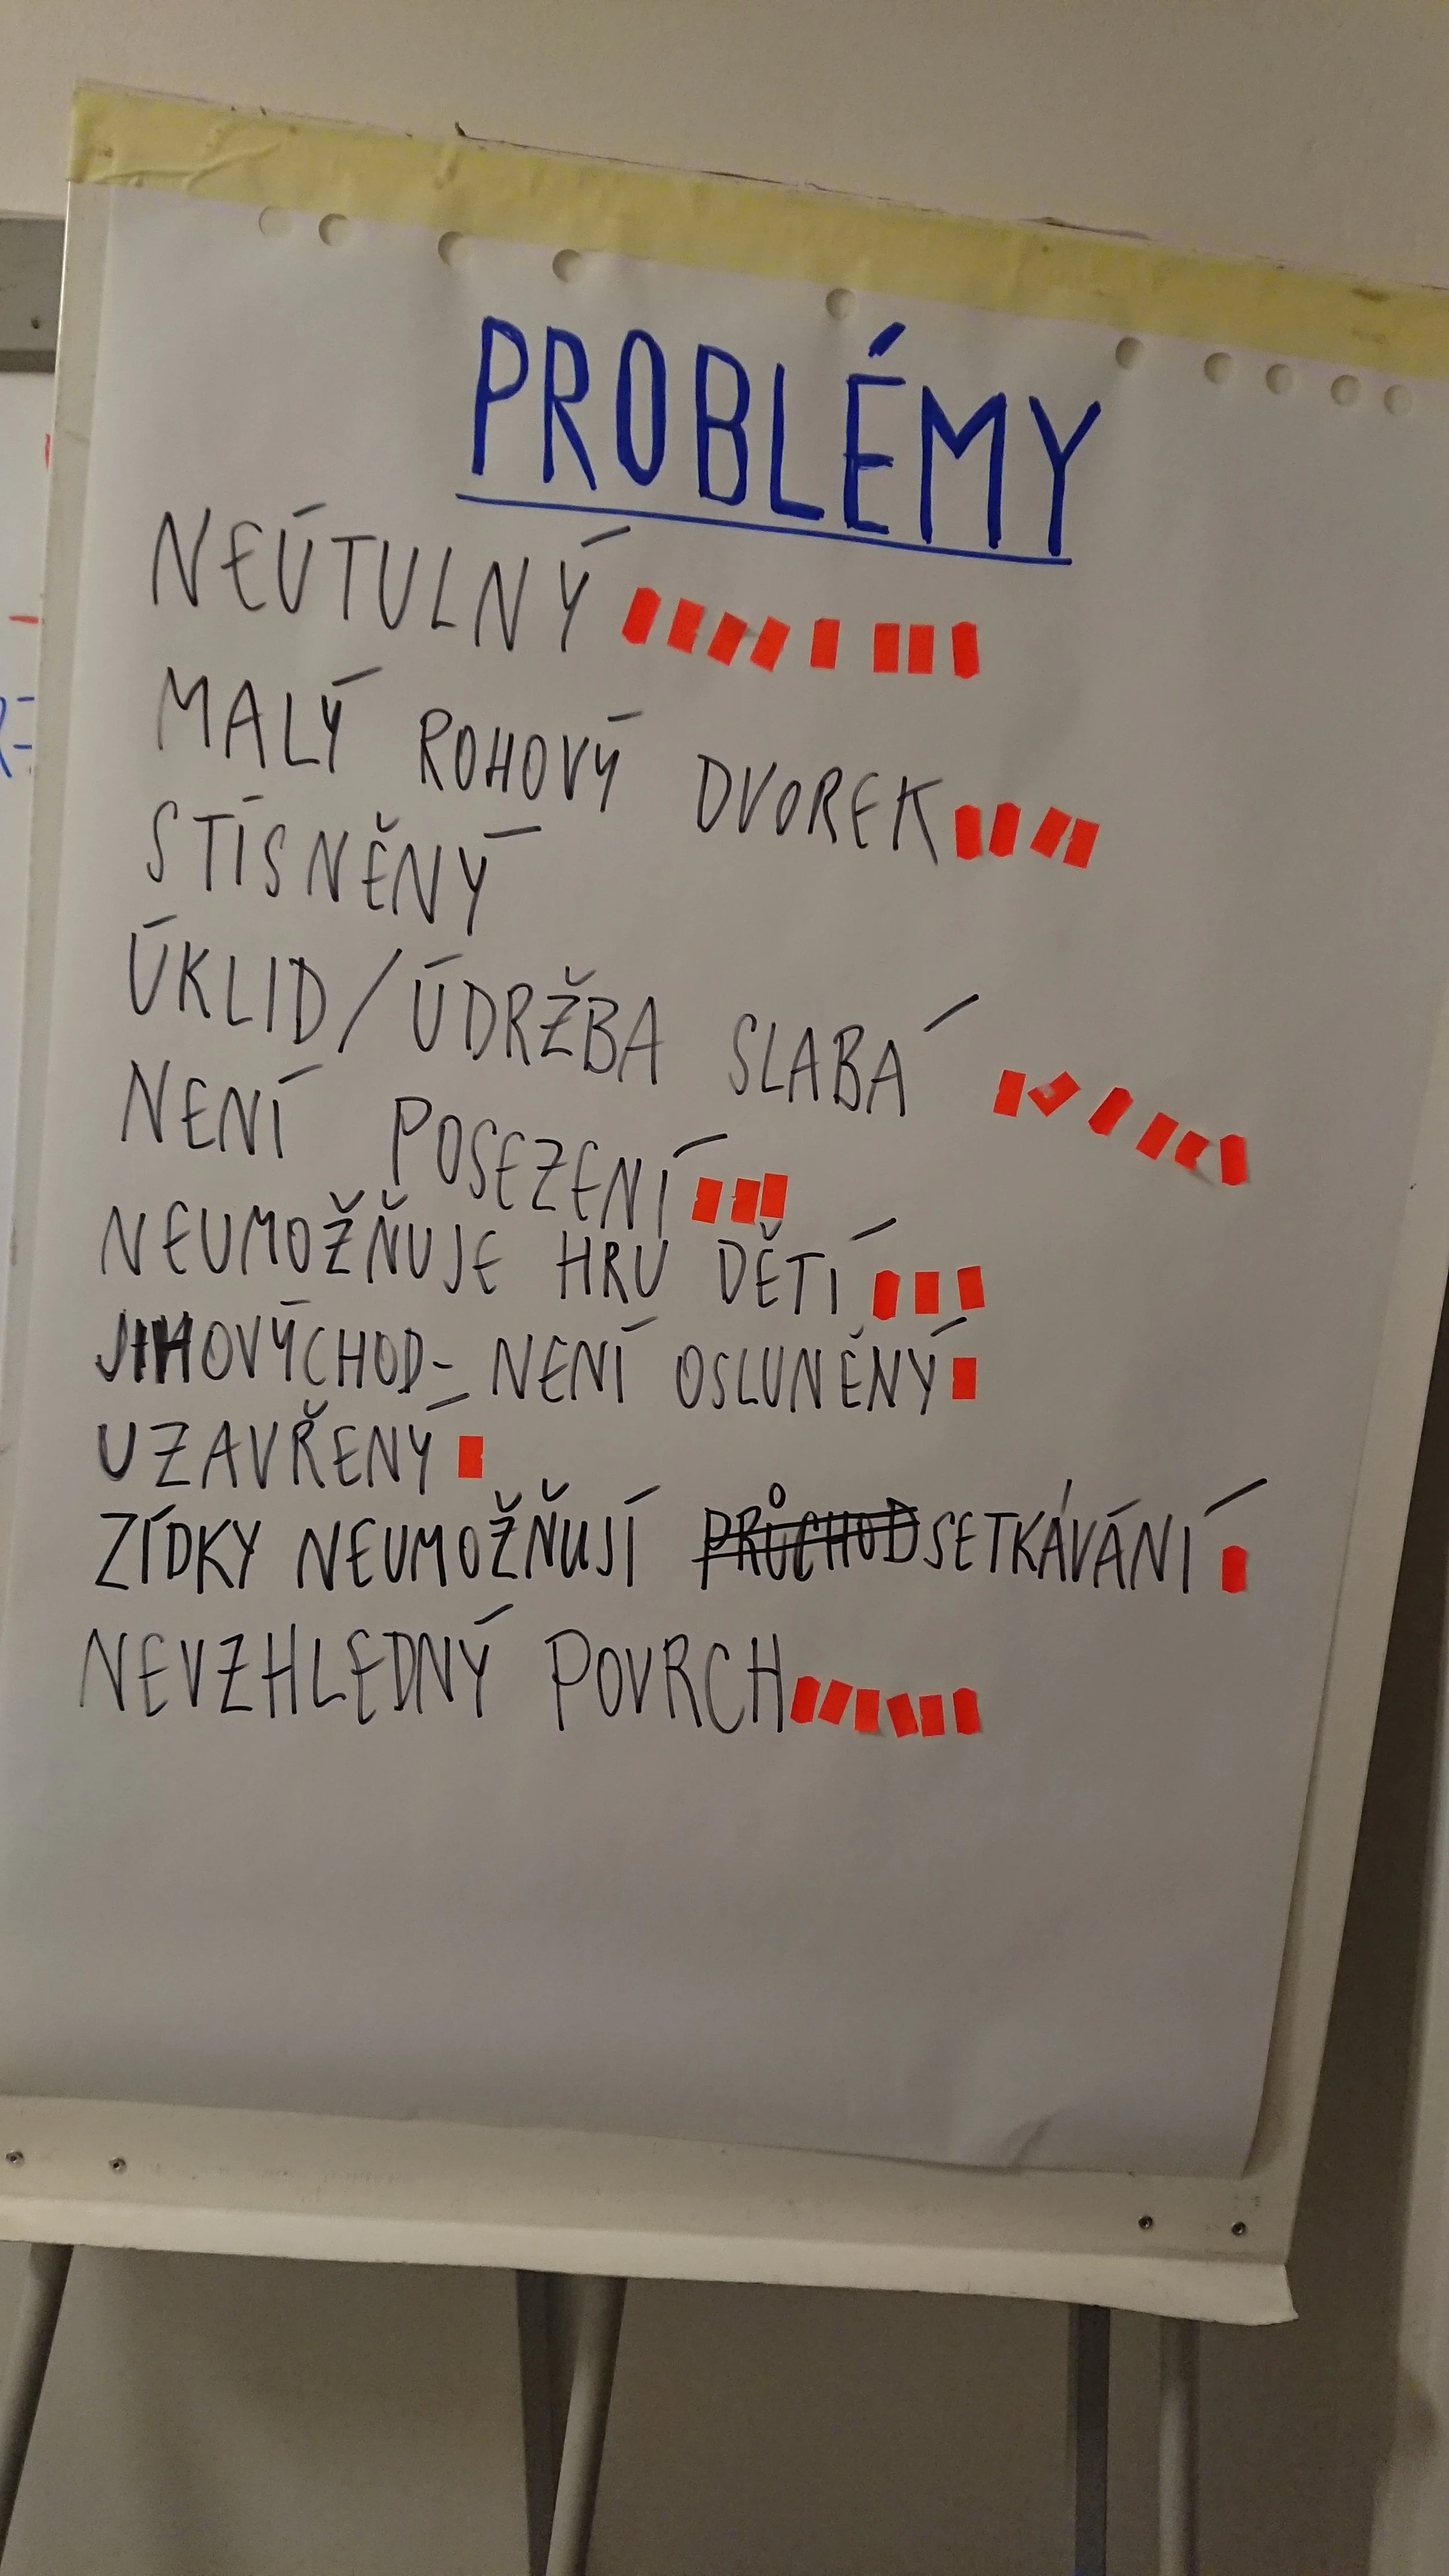 PROBLÉMY
NEÚTULNÝ
MALÝ ROHOVÝ DVOREK
STÍSNĚNÝ
ÚKLID/ÚDRŽBA SLABÁ
NENÍ POSEZENÍ
NEUMOŽŇUJE HRU DĚTÍ
JIHOVÝCHOD - NENÍ OSLUNĚNÝ
UZAVŘENÝ
ZÍDKY NEUMOŽŇUJÍ PRŮCHOD SETKÁVÁNÍ
NEVZHLEDNÝ POVRCH